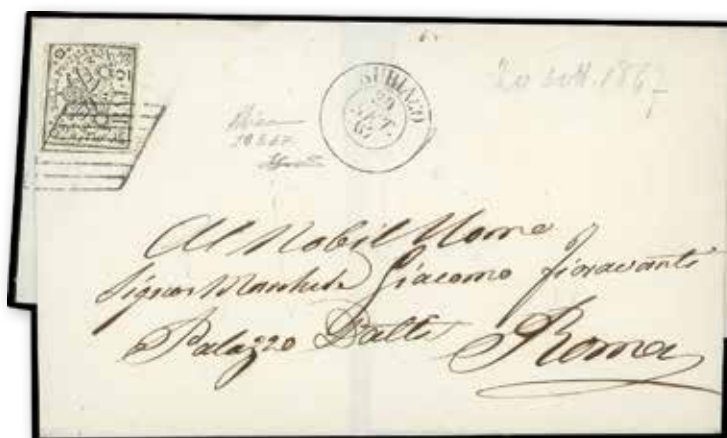 SUBIACO
20
SET.
67
20 sett. 1867
Al Nobil Uomo
Signor Marchese Giacomo Fioravanti
Palazzo Roma